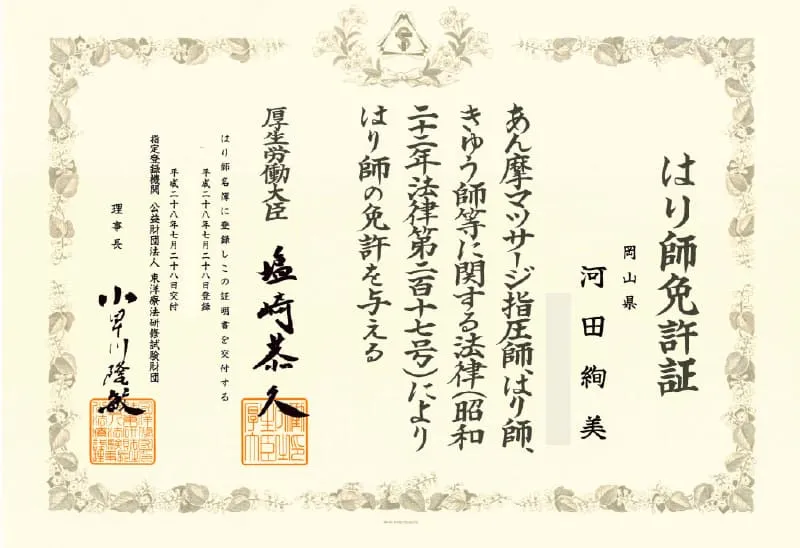 はり師免許証
岡山県
河田絢美
あん摩マツサージ指圧師、はり師、
きゆう師等に関する法律(昭和
二十二年法律第二百十七号)により
はり師の免許を与える
厚生労働大臣 塩崎恭久
はり師名簿に登録しこの証明書を交付する
平成二十八年七月二十八日登録
平成二十八年七月二十八日交付
指定登録機関 公益財団法人 東洋療法研修試験財団
理事長 小早川隆敏